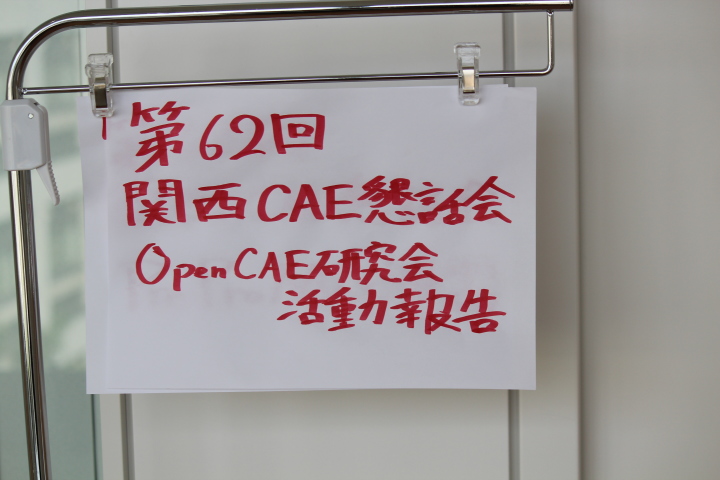 第62回
関西CAE懇話会
OpenCAE研究会
活動報告